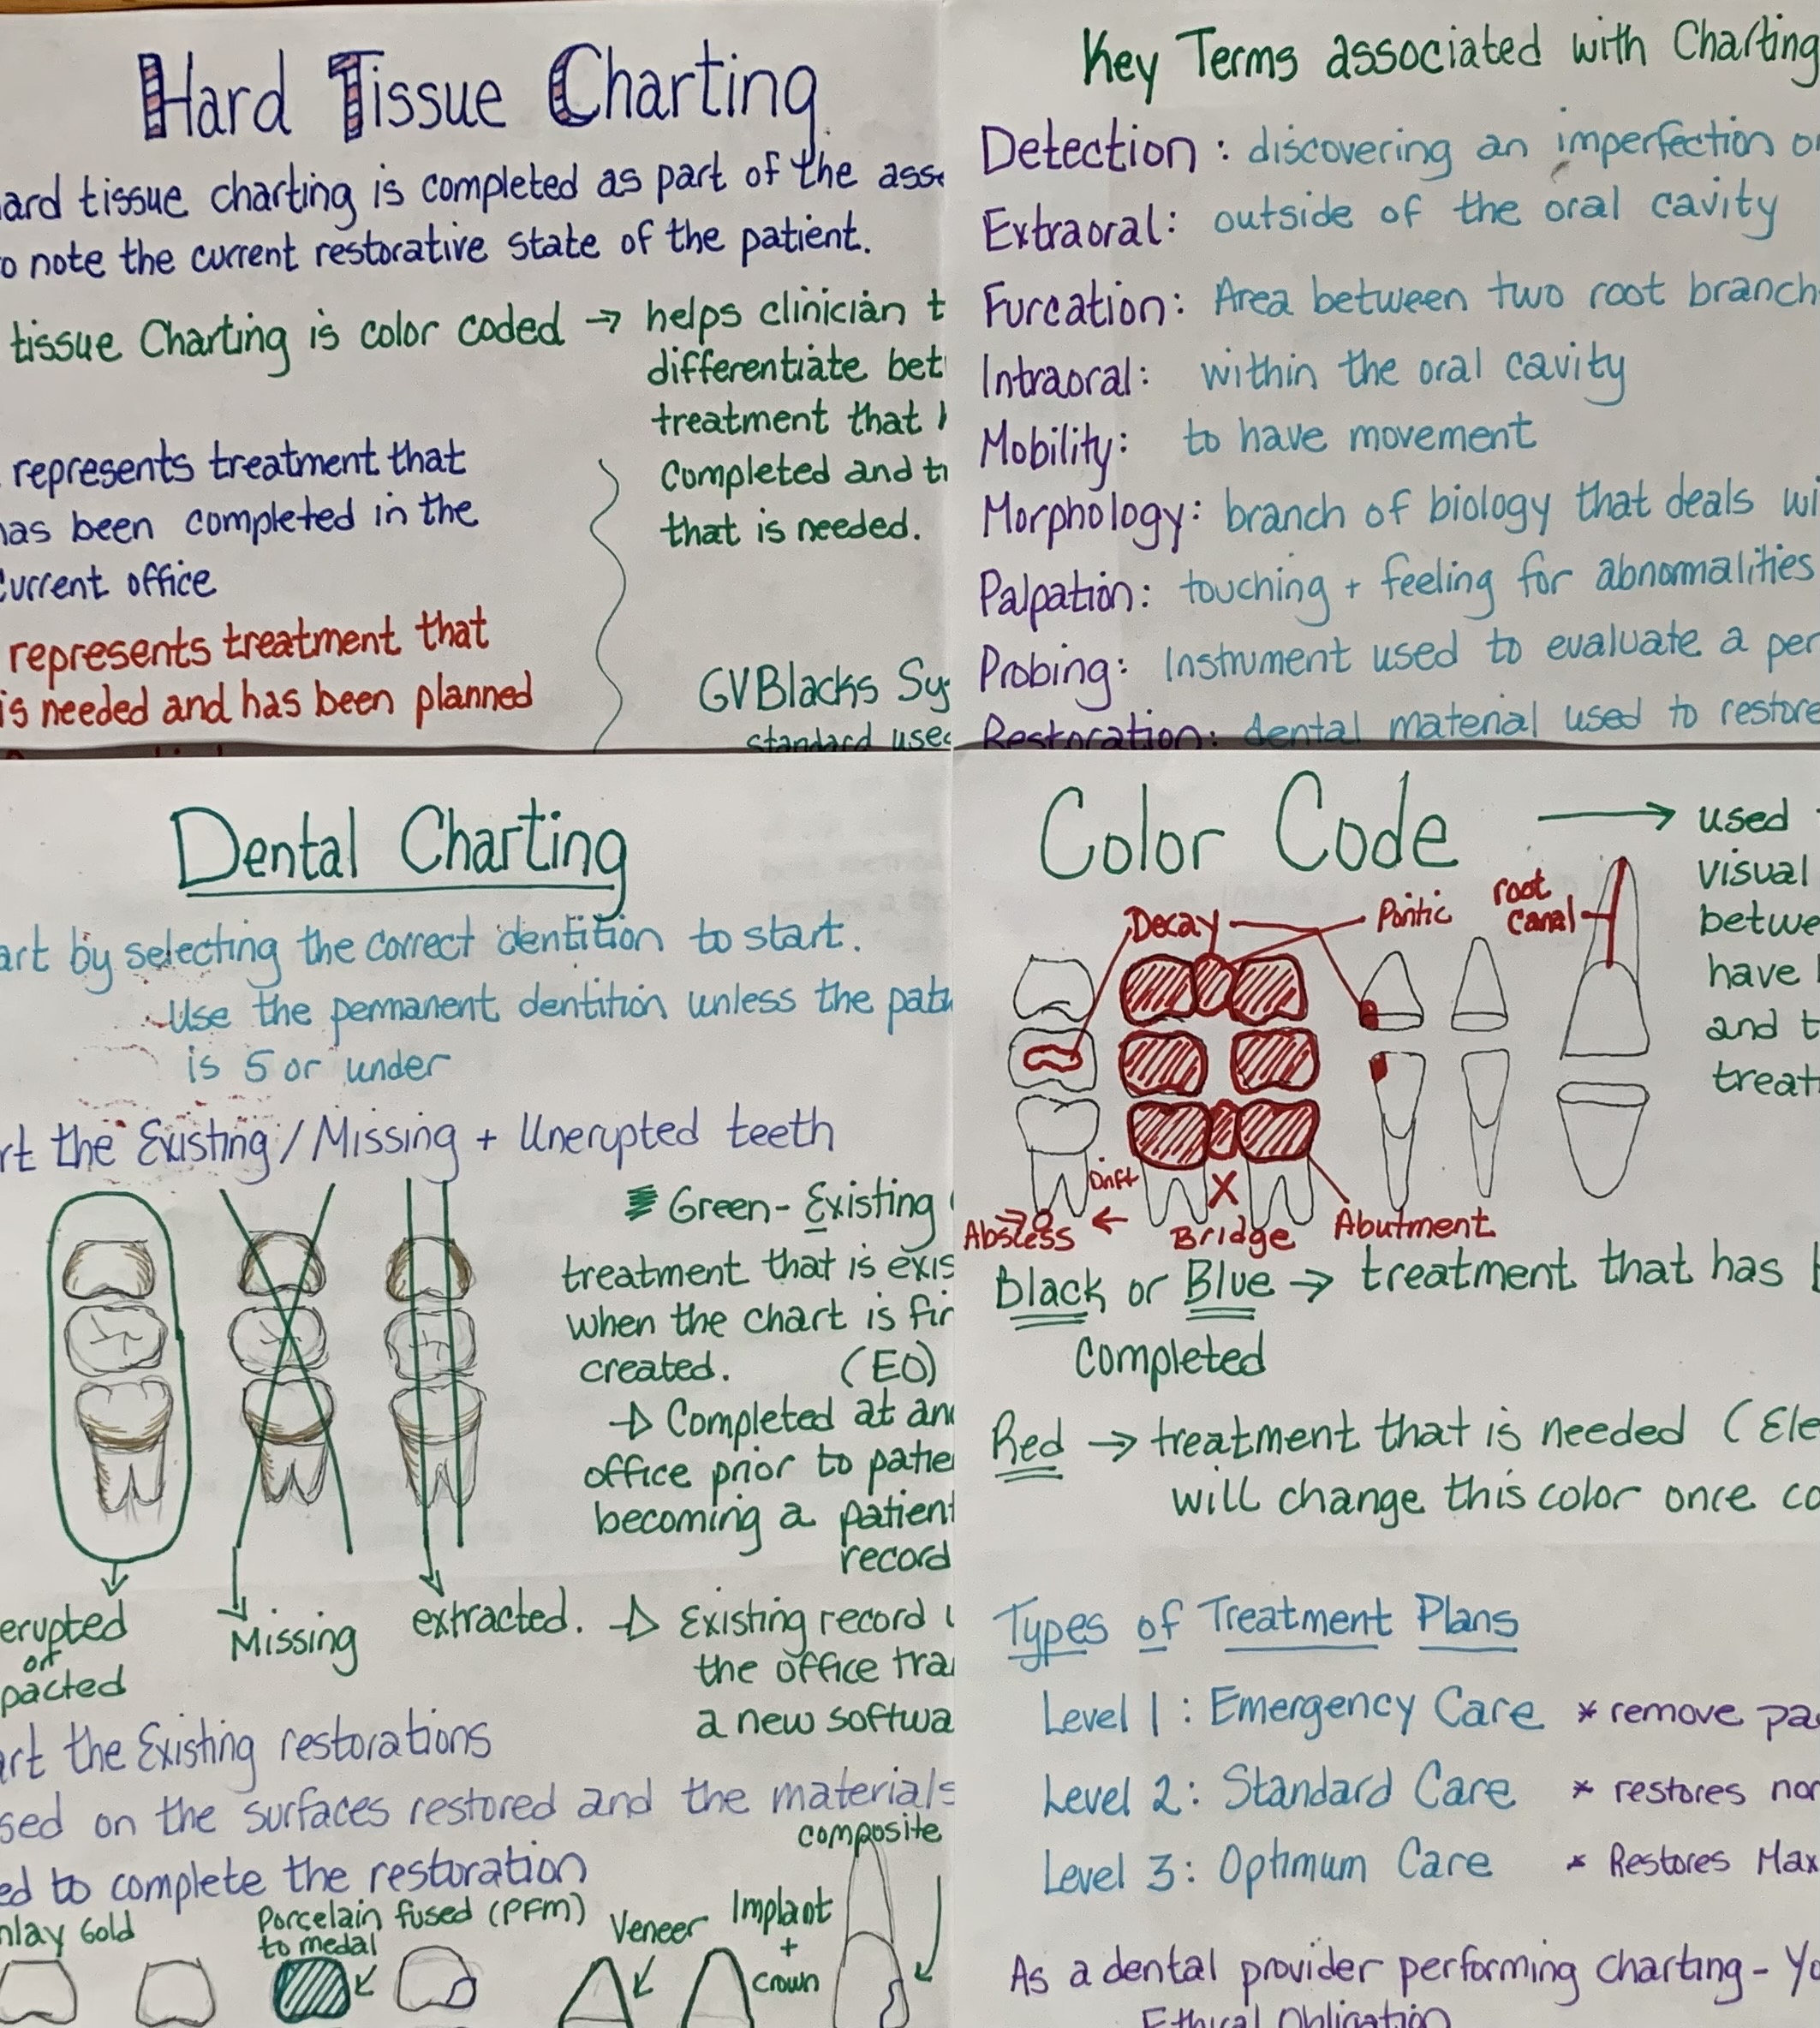 Hard Tissue Charting
ard tissue charting is completed as part of the asse
o note the current restorative state of the patient.
tissue Charting is color coded → helps clinician t
differentiate bet
treatment that
Completed and tr
that is needed.
represents treatment that
has been completed in the
Current office
represents treatment that
is needed and has been planned
GVBlacks Sy
standard used
Key Terms associated with Charting
Detection: discovering an imperfection or
Extraoral: outside of the oral cavity
Furcation: Area between two root branch
Intraoral: within the oral cavity
Mobility: to have movement
Morphology: branch of biology that deals wi
Palpation: touching + feeling for abnormalities
Probing: Instrument used to evaluate a per
Restoration: dental material used to restore
Dental Charting
art by selecting the correct dentition to start.
Use the permanent dentition unless the pati
is 5 or under
rt the Existing / Missing + Unerupted teeth
Green - Existing
treatment that is exis
when the chart is fir
created. (EO)
→ Completed at an
office prior to patie
becoming a patient
record
erupted
or
pacted
Missing
extracted.
→ Existing record
the office tra
a new softwa
art the Existing restorations
sed on the surfaces restored and the materials
ed to complete the restoration
composite
nlay Gold
Porcelain fused (PFM)
to medal
Veneer
Implant
+
crown
Color Code → used
visual
betwe
have
and t
treat
Decay
Pontic
root
canal
Drift
X
Absess ←
Bridge
Abutment
Black or Blue → treatment that has
Completed
Red → treatment that is needed (Ele
will change this color once co
Types of Treatment Plans
Level 1: Emergency Care * remove pa
Level 2: Standard Care * restores nor
Level 3: Optimum Care * Restores Max
As a dental provider performing charting - Yo
Ethical Obligation